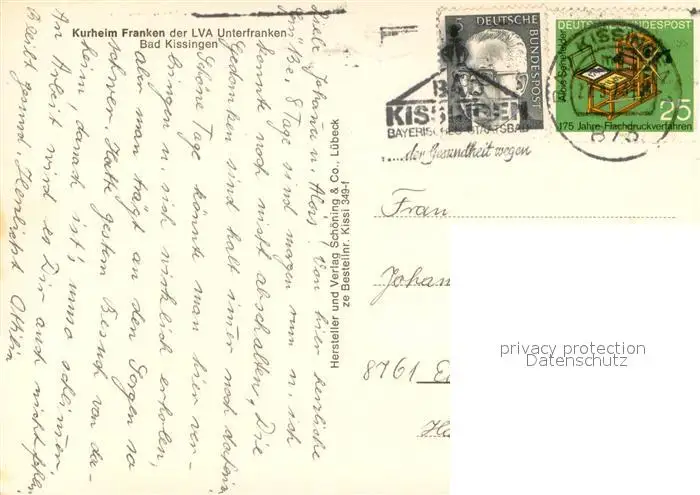 Kurheim Franken der LVA Unterfranken
Bad Kissingen
Liebe Johanna u. Alois! Von hier herzliche
Grüße. 8 Tage sind morgen rum u. ich
konnte noch nicht abschalten. Die
Gedanken sind halt immer noch daheim.
Schöne Tage könnte man hier ver-
bringen u. sich wirklich erholen,
aber man trägt an den Sorgen so
schwer. Hatte gestern Besuch von da-
heim, danach ist's immer schlimmer.
An Arbeit wird es Dir auch nicht fehlen.
Bleibt gesund. Herzlichst Ottilie
Hersteller und Verlag Schöning & Co., Lübeck
ze Bestellnr. Kissi 349-f
5
DEUTSCHE BUNDESPOST
BAD
KISSINGEN
BAYERISCHES STAATSBAD
....der Gesundheit wegen
DEUTSCHE BUNDESPOST
Alois Senefelder
25
175 Jahre Flachdruckverfahren
KISSINGEN
873
Frau
Johan
8761
privacy protection
Datenschutz